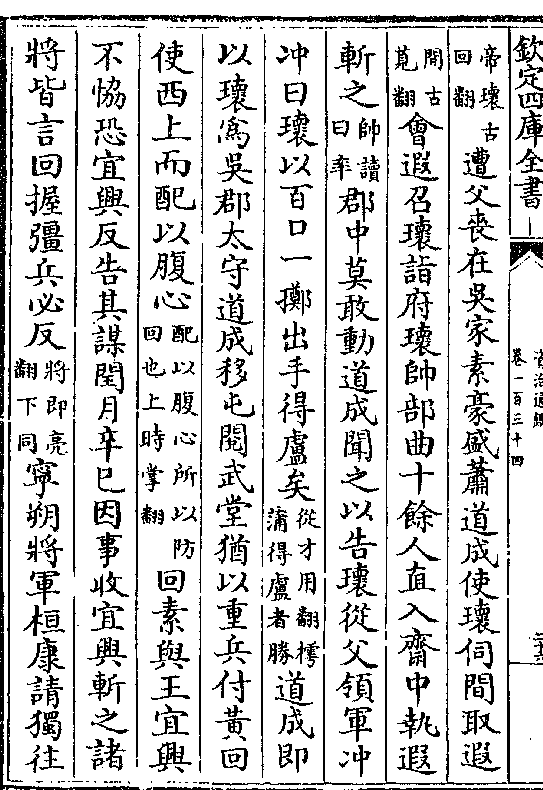 欽定四庫全書
資治通鑑
卷一百三十四
帝瓌古回翻遭父喪在吳家素豪盛蕭道成使瓌伺間取遐
間古莧翻會遐召瓌詣府瓌帥部曲十餘人直入齋中執遐
斬之帥讀曰率郡中莫敢動道成聞之以告瓌從父領軍冲
冲曰瓌以百口一擲出手得盧矣從才用翻樗蒲得盧者勝道成即
以瓌爲吳郡太守道成移屯閱武堂猶以重兵付黃回
使西上而配以腹心配以腹心所以防回也上時掌翻回素與王宜興
不恊恐宜興反告其謀閏月辛巳因事收宜興斬之諸
將皆言回握彊兵必反將即亮翻下同寧朔將軍桓康請獨往